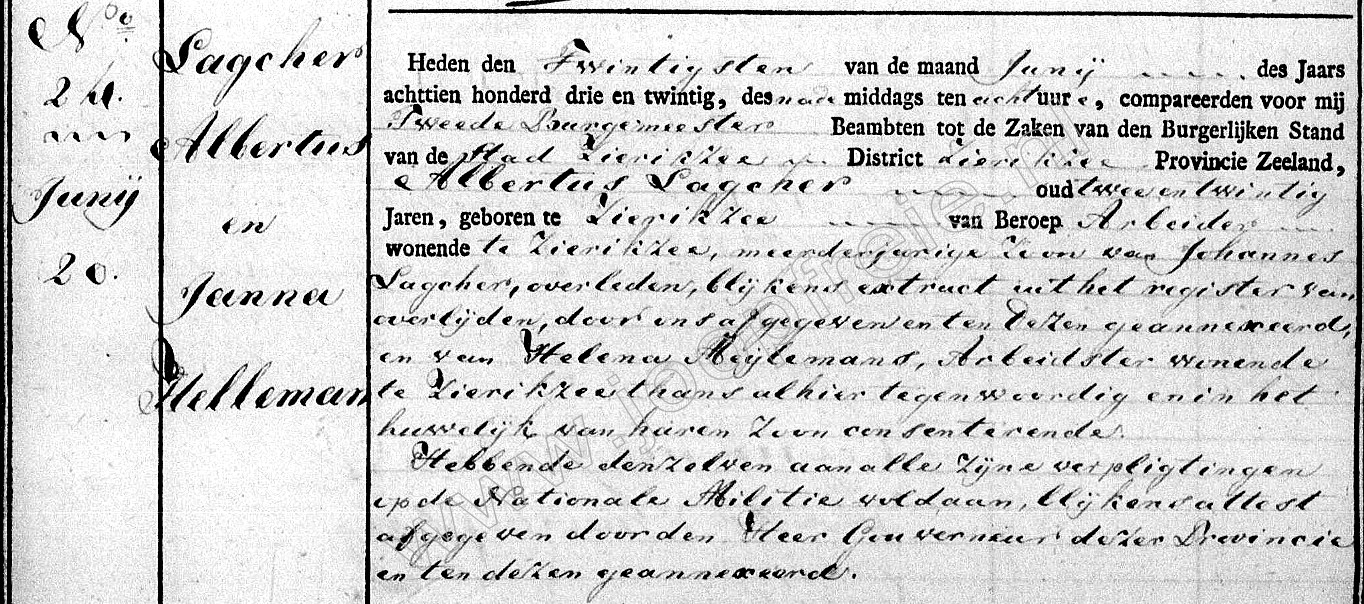 No
24.
Junij
20.
Lagcher
Albertus
en
Janna
Helleman
Heden den Twintigsten van de maand Junij des Jaars
achttien honderd drie en twintig, des nade middags ten acht uure, compareerden voor mij
Tweede Burgemeester Beambten tot de Zaken van den Burgerlijken Stand
van de Stad Zierikzee District Zierikzee Provincie Zeeland,
Albertus Lagcher oud twee en twintig
Jaren, geboren te Zierikzee van Beroep Arbeider
wonende te Zierikzee, meerderjarige Zoon van Johannes
Lagcher, overleden, blijkens extract uit het register van
overlijden, door ons afgegeven en ten dezen geannexeerd,
en van Helena Meijlemans, Arbeidster wonende
te Zierikzee thans alhier tegenwoordig en in het
huwelijk van haren Zoon consenterende.
Hebbende denzelven aan alle zijne verpligtingen
op de Nationale Militie voldaan, blijkens attest
afgegeven door den Heer Gouverneur dezer Provincie
en ten dezen geannexeerd.